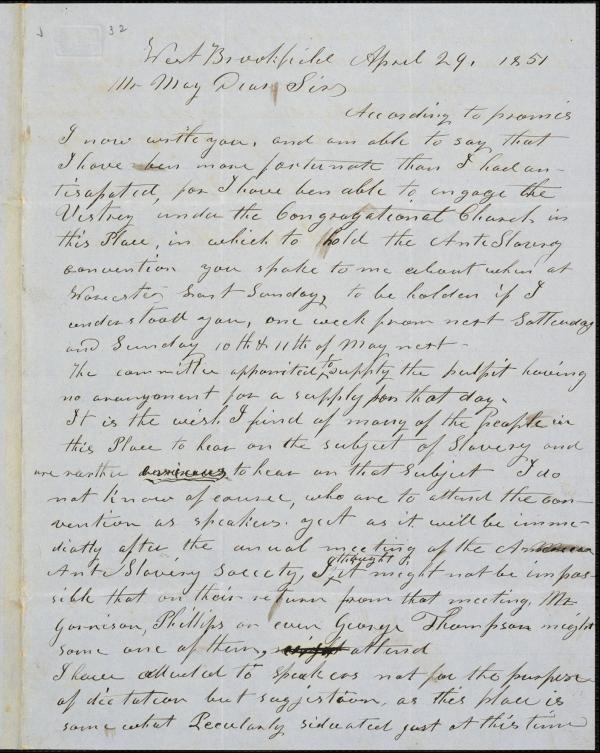 32
West Brookfield April 29. 1851
Mr May Dear Sir
According to promis
I now write you, and am able to say that
I have ben more fortunate than I had an-
tisapated, for I have ben able to engage the
Vistrey under the Congragational Church in
this Place, in which to hold the Anti Slavery
convention you spoke to me about when at
Worcester Last Sunday, to be holden if I
understood you, one week from next Satterday
and Sunday 10th & 11th of May next -
The committee appointed to supply the pulpit having
no arangonent for a supply for that day.
It is the wish I find of many of the People in
this Place to hear on the subject of Slavery and
are rarther to hear on that Subject I do
not know of course, who are to attend the con-
vention as speakers. yet as it will be imme-
diatly after the anual meeting of the American
Anti Slavery Society, I thought it might not be impos-
sible that on their return from that meeting, Mr
Garrison, Phillips or even George Thompson might
some one of them, attend
I have alluded to speakers not for the purpose
of dictation but suggistion, as this place is
some what Pecularly sidwated just at this time